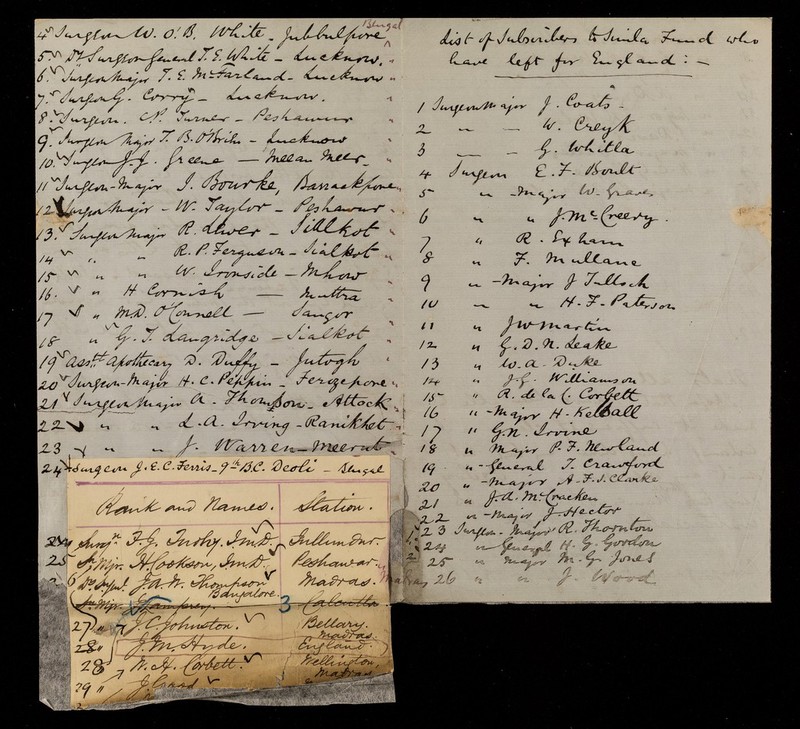 4 Surgeon W. O'B. White - Jubbulpore Bengal
5 Dy Surgeon General T. E. White - Lucknow. "
6 Surgeon Major T. E. McFarland - Lucknow "
7 Surgeon G. Corry - Lucknow. "
8 Surgeon. N. Turner - Peshawur "
9 Surgeon Major T. B. O'Brien - Lucknow "
10 Surgeon J. J. Greene - Meean Meer. "
11 Surgeon-Major J. Bourke, Barrackpore "
12 Surgeon Major - W. Taylor - Peshawur "
13. Surgeon Major R. - Sialkot "
14 " " R. P. Ferguson - Sialkot "
15 " " W. Ironside - Mhow "
16. " H Cornish - Muttra "
17 " M.D. O'Connell - Saugor "
18 " G. T. Langridge - Sialkot "
19 Asstt Apothecary D. Duffy - Jutogh "
20 Surgeon-Major H. C. Peppin - Ferozepore "
21 Surgeon Major A. Thomson - Attock "
22 " " L. A. Irving - Ranikhet "
23 " " J. Warren - Meerut "
24 Surgeon J. E. C. Ferris - 9th B.C. Deoli - Bengal
Rank and Names. Station.
Surgn F. G. Jullundur.
25 Sn Mjr. H. Cookson, I.M.D. Peshawar. "
26 Dy. Sgl. J. A. W. Thompson Madras. Madras
Bangalore.
Sn Mjr. Lamprey. 3 Calcutta
27 " J. C. Johnston. Bellary.
Madras.
28 " J. M. Hyde. England.
28 W. H. Corbett. Wellington,
Madras
29 "
List of Subscribers to Simla Fund who
have left for England: -
1 Surgeon Major J. Coats -
2 " - W. Creyk
3 - - G. Whitla
4 Surgeon E. F. Boult
5 " - Major W. Graves
6 " " J. McCreery.
7 " R. Exham
8 " F. Mullane
9 " - Major J Tulloch
10 " " H. F. Paterson
11 " J W Martin
12 " G. D. N. Leake
13 " W. A. Duke
14 " J. G. Williamson
15 " R. de la C. Corbett
16 " - Major H. Kelsall
17 " G. N. Irvine
18 " Major P. F. Newland
19 " - General T. Crawford
20 " - Major A. F. S. Clarke
21 " J. A. McCracken
22 " - Major J. Hector
23 Surgeon - Major R. Thornton
24 " General H. G. Gordon
25 " Major M. G. Jones
26 " " J. Wood